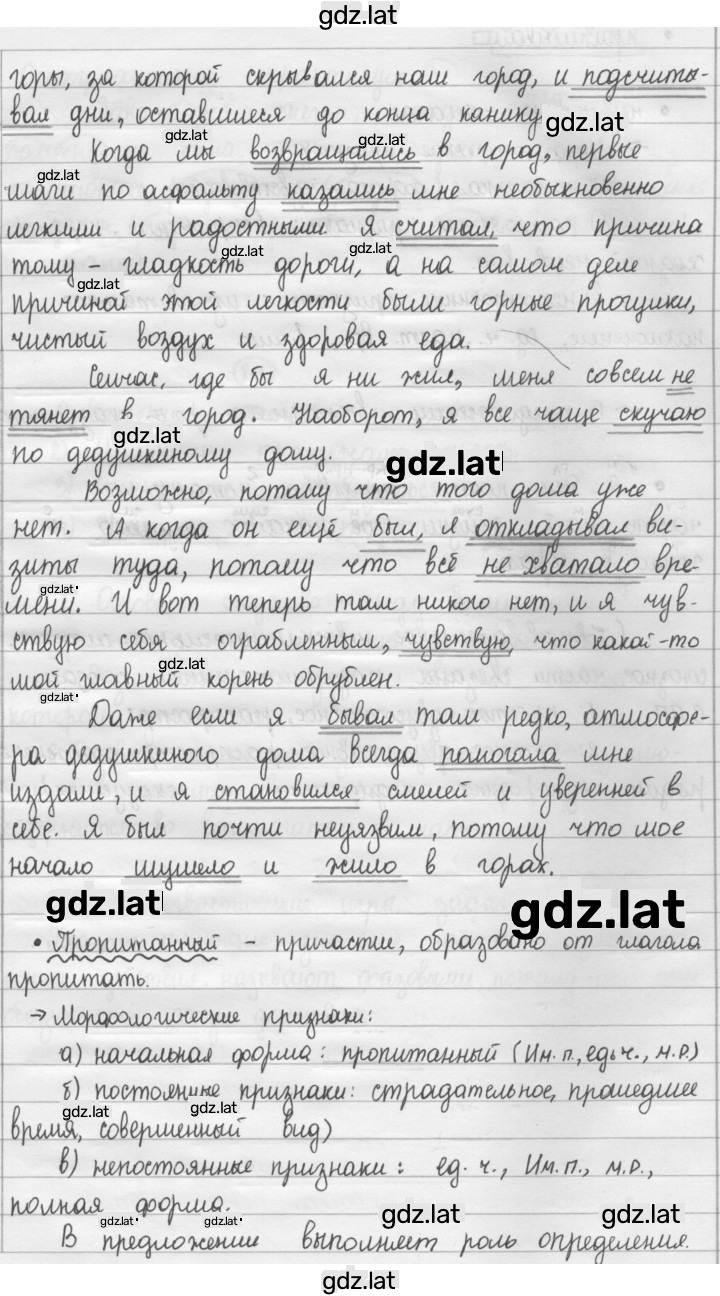 gdz.lat
горы, за которой скрывался наш город, и подсчиты-
вал дни, оставшиеся до конца каникул.
gdz.lat gdz.lat gdz.lat gdz.lat
Когда мы возвращались в город, первые
шаги по асфальту казались мне необыкновенно
легкими и радостными. Я считал, что причина
gdz.lat gdz.lat
тому – гладкость дороги, а на самом деле
gdz.lat
причиной этой легкости были горные прощики,
чистый воздух и здоровая еда.
Сейчас, где бы я ни жил, меня совсем не
тянет в город. Наоборот, я все чаще скучаю
gdz.lat
по дедушкиному дому.
gdz.lat
Возможно, потому что того дома уже
нет. А когда он ещё был, я откладывал ви-
зиты туда, потому что всё не хватало вре-
gdz.lat
мени. И вот теперь там никого нет, и я чув-
ствую себя ограбленным, чувствую, что какой-то
gdz.lat
мой главный корень обрублен.
gdz.lat
Даже если я бывал там редко, атмосфе-
ра дедушкиного дома всегда помогала мне
издали, и я становился смелей и уверенней в
себе. Я был почти неуязвим, потому что мое
начало шумело и жило в горах.
gdz.lat gdz.lat
• Пропитанный – причастие, образовано от глагола
пропитать.
→ Морфологические признаки:
а) начальная форма: пропитанный (Им. п., ед. ч., м.р.)
б) постоянные признаки: страдательное, прошедшее
gdz.lat gdz.lat
время, совершенный вид)
в) непостоянные признаки: ед. ч., Им. п., м.р.,
полная форма.
gdz.lat gdz.lat gdz.lat gdz.lat
В предложении выполняет роль определения.
gdz.lat